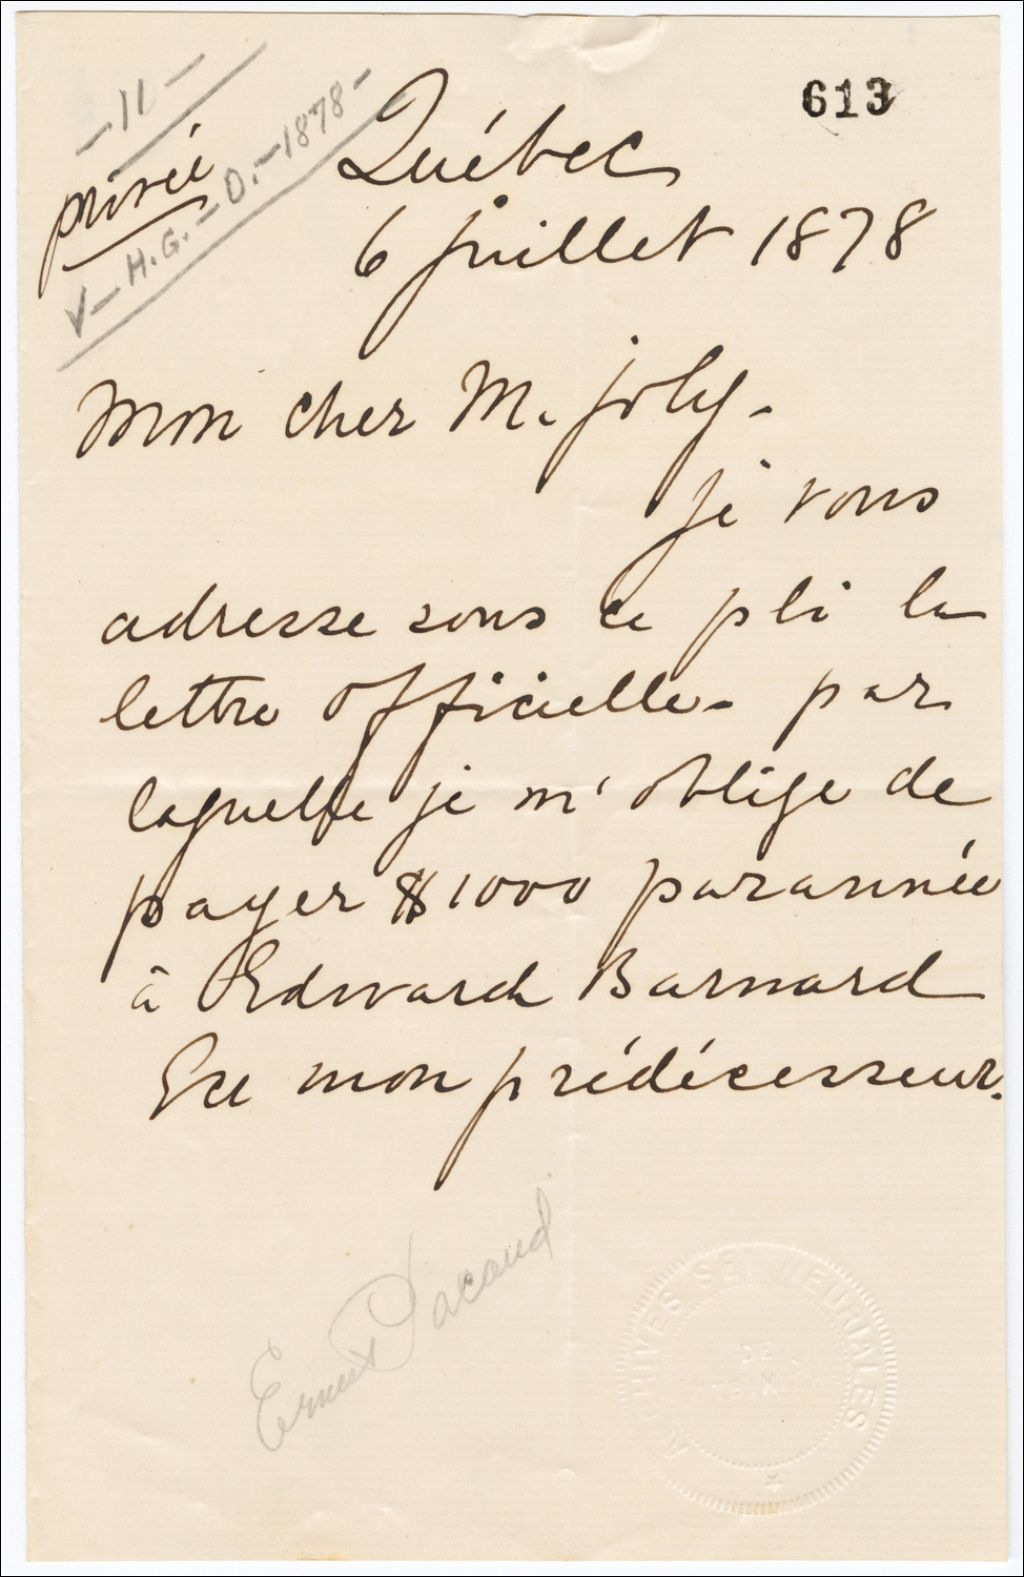 613
- 11 -
privée
V - H.G. - D. - 1878 -
Québec
6 juillet 1878
Mon cher M. Joly -
Je vous
adresse sous ce pli la
lettre officielle - par
laquelle je m'oblige de
payer $1000 par année
à Edward Barnard
Ex mon prédécesseur.
Ernest Pacaud
ARCHIVES SEIGNEURIALES
DE